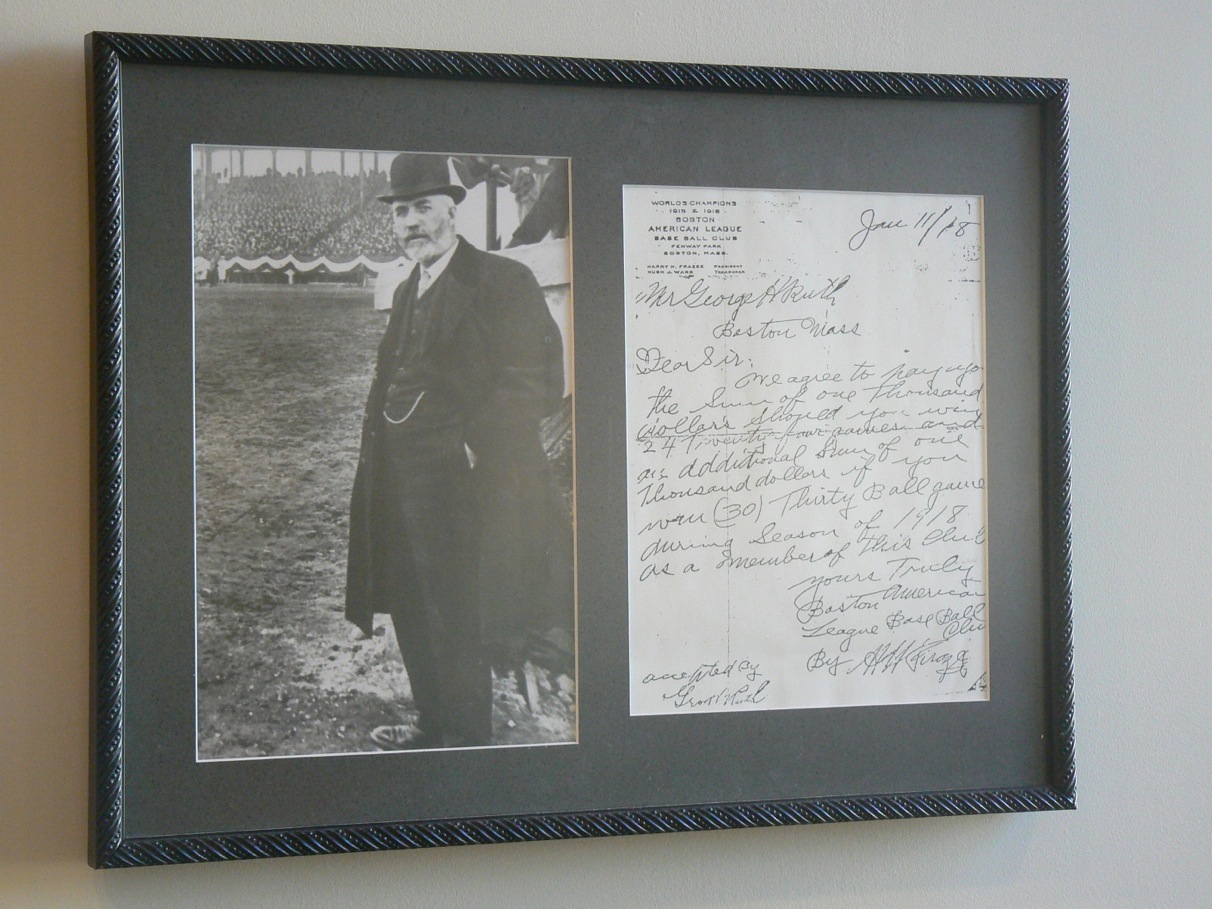 WORLD'S CHAMPIONS
1915 & 1916
BOSTON
AMERICAN LEAGUE
BASE BALL CLUB
FENWAY PARK
BOSTON, MASS.
HARRY H. FRAZEE PRESIDENT
HUGH J. WARD TREASURER
Jan 11/18
Mr George H Ruth
Boston Mass
Dear Sir:
We agree to pay yo
the Sum of one Thousand
dollars should you win
24 Twenty four games and
an additional Sum of one
Thousand dollars if you
win (30) Thirty Ball game
during Season of 1918
as a member of this Club
yours Truly
Boston American
League Base Ball
Club
By HH Frazee
accepted by
Geo H Ruth